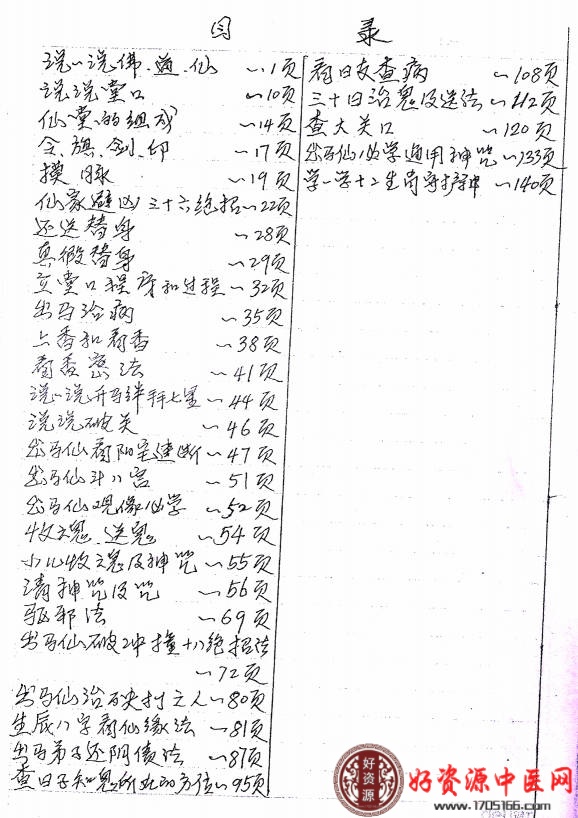 目 录
说一说佛.道.仙 ~1页
说说堂口 ~10页
仙堂的组成 ~14页
令.旗.剑.印 ~17页
摸脉 ~19页
仙家避凶三十六绝招~22页
还送替身 ~28页
真假替身 ~29页
立堂口程序和过程~32页
出马治病 ~35页
上香和看香 ~38页
看香密法 ~41页
说一说开马绊手七星~44页
说说破关 ~46页
出马仙看阳宅速断~47页
出马仙斗八宫 ~51页
出马仙观像必学 ~52页
收魂.送鬼 ~54页
小儿收魂及神咒 ~55页
请神咒及咒 ~56页
驱邪法 ~69页
出马仙破冲撞十八绝招法
~72页
出马仙治 之人~80页
生辰八字看仙缘法 ~81页
出马弟子还阴债法 ~87页
查日子知鬼所在的方位~95页
看日支查病 ~108页
三十日治鬼及送法~112页
查大关口 ~120页
出马仙必学通用神咒~133页
学一学十二生肖守护神 ~140页
好资源
好资源中医网
www.1705166.com